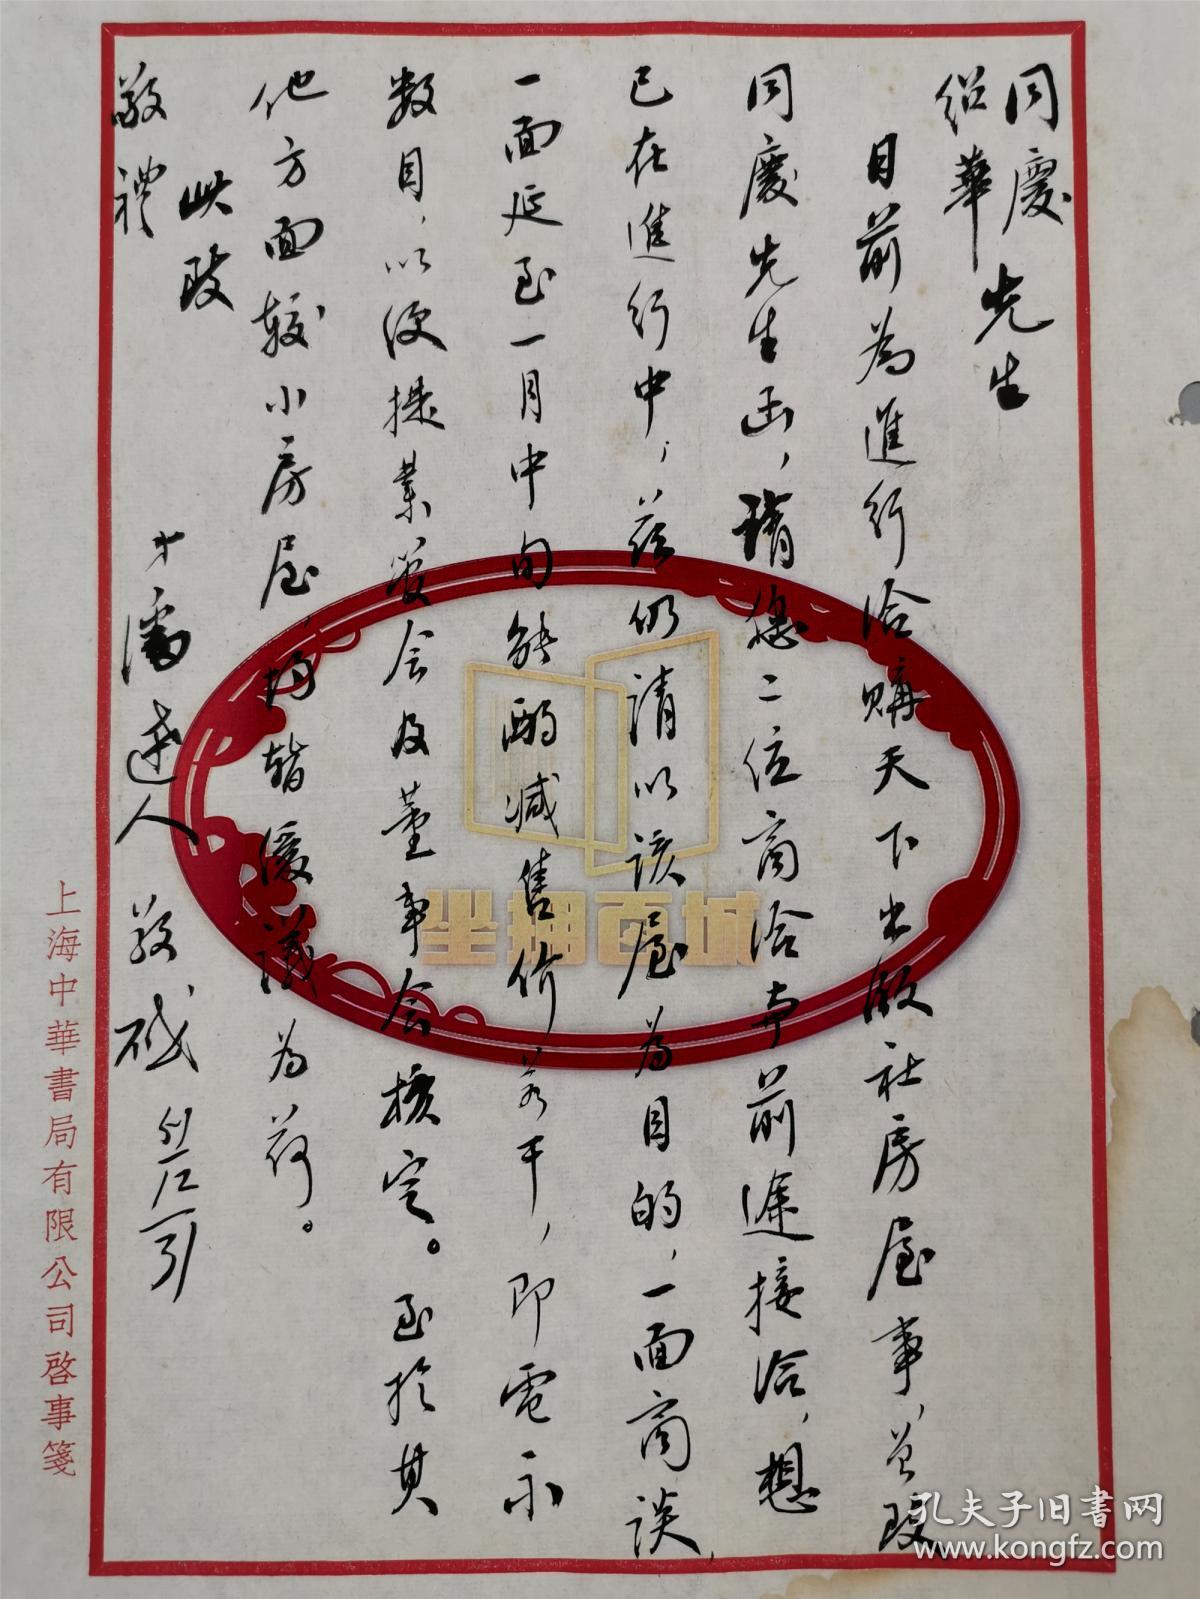 同慶
紹華先生
目前為進行洽購天下出版社房屋事,曾致
同慶先生函,請您二位商洽専前途接洽,想
已在進行中,兹仍請以該屋為目的,一面商談,
一面延至一月中旬能酌减售价若干,即電示
数目,以便提業管会及董事会核定。至於其
他方面較小房屋,均暫緩議為荷。
此致
敬礼
弟潘达人敬啟 51/12/31
上海中華書局有限公司啓事箋
坐拥百城
孔夫子旧书网
www.kongfz.com